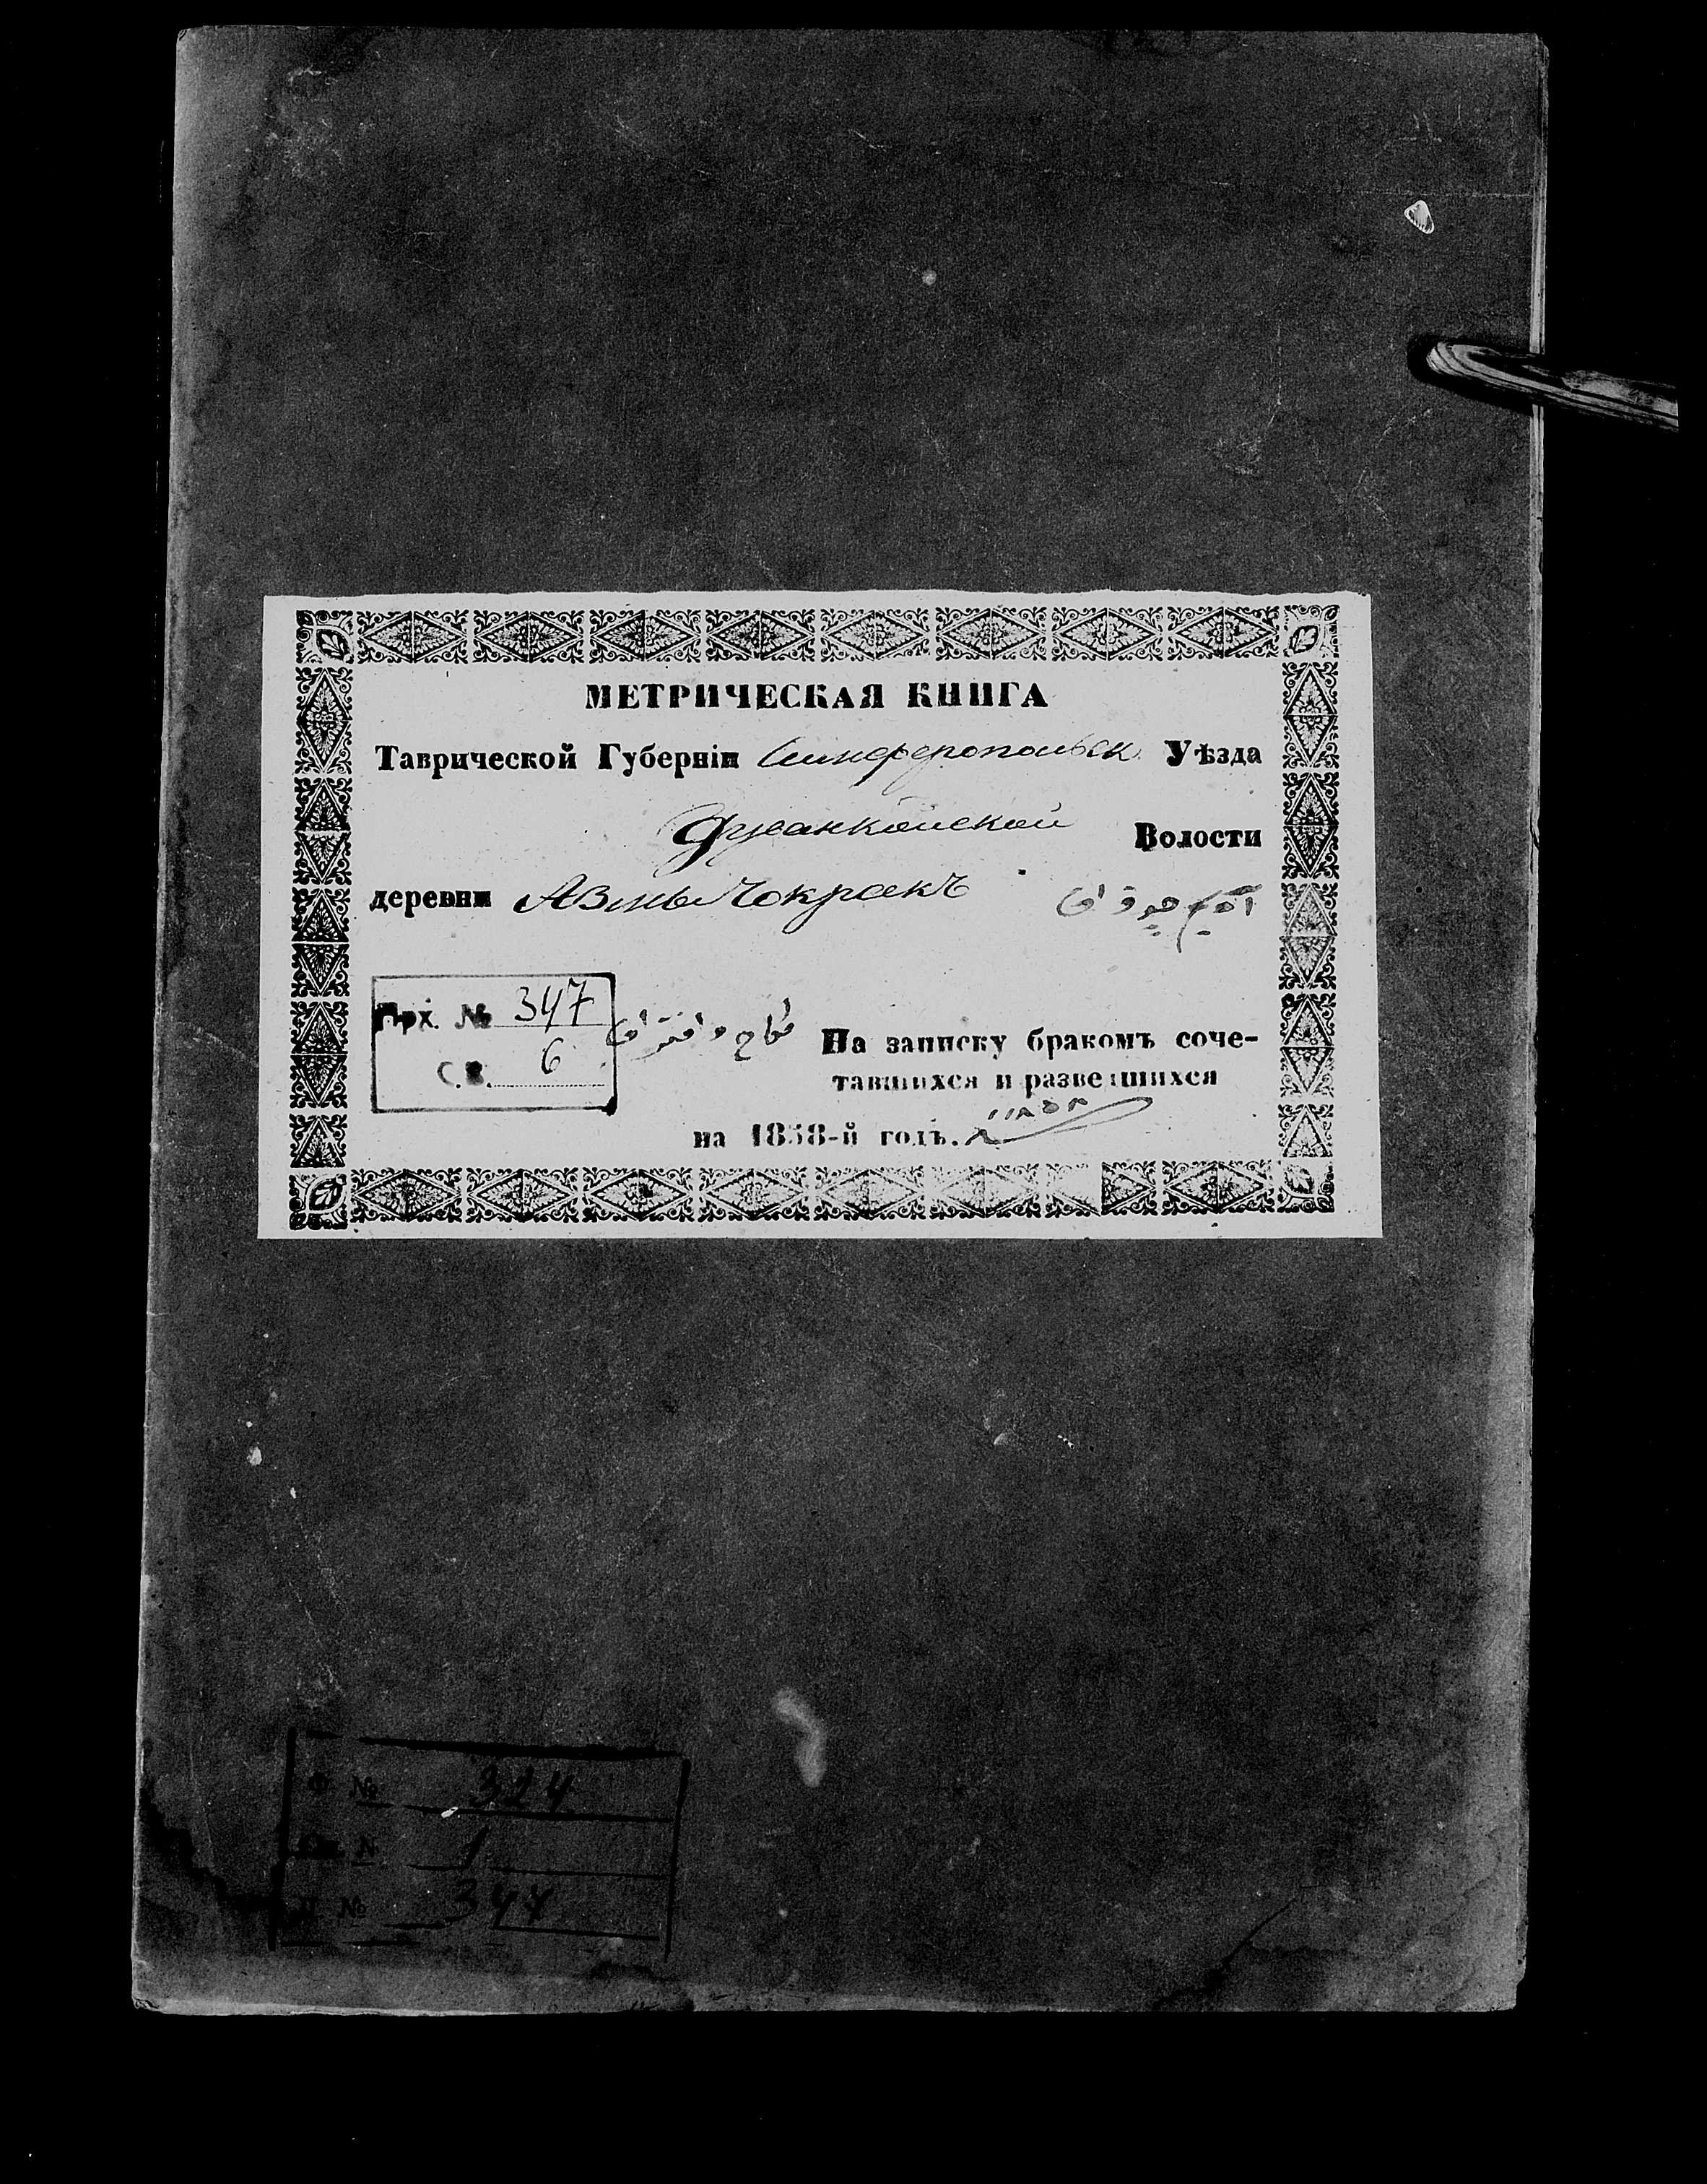 МЕТРИЧЕСКАЯ КНИГА
Таврической Губерніи Симферопольск. Уѣзда
Джанкойской Волости
деревни Азнъ Чокракъ
Арх. № 347
С.В. 6
نكاح و افتراق
На записку бракомъ соче-
тавшихся и разведшихся
на 1858-й годъ. ١٨٥٨
Ф № 324
Оп. № 1
Д. №